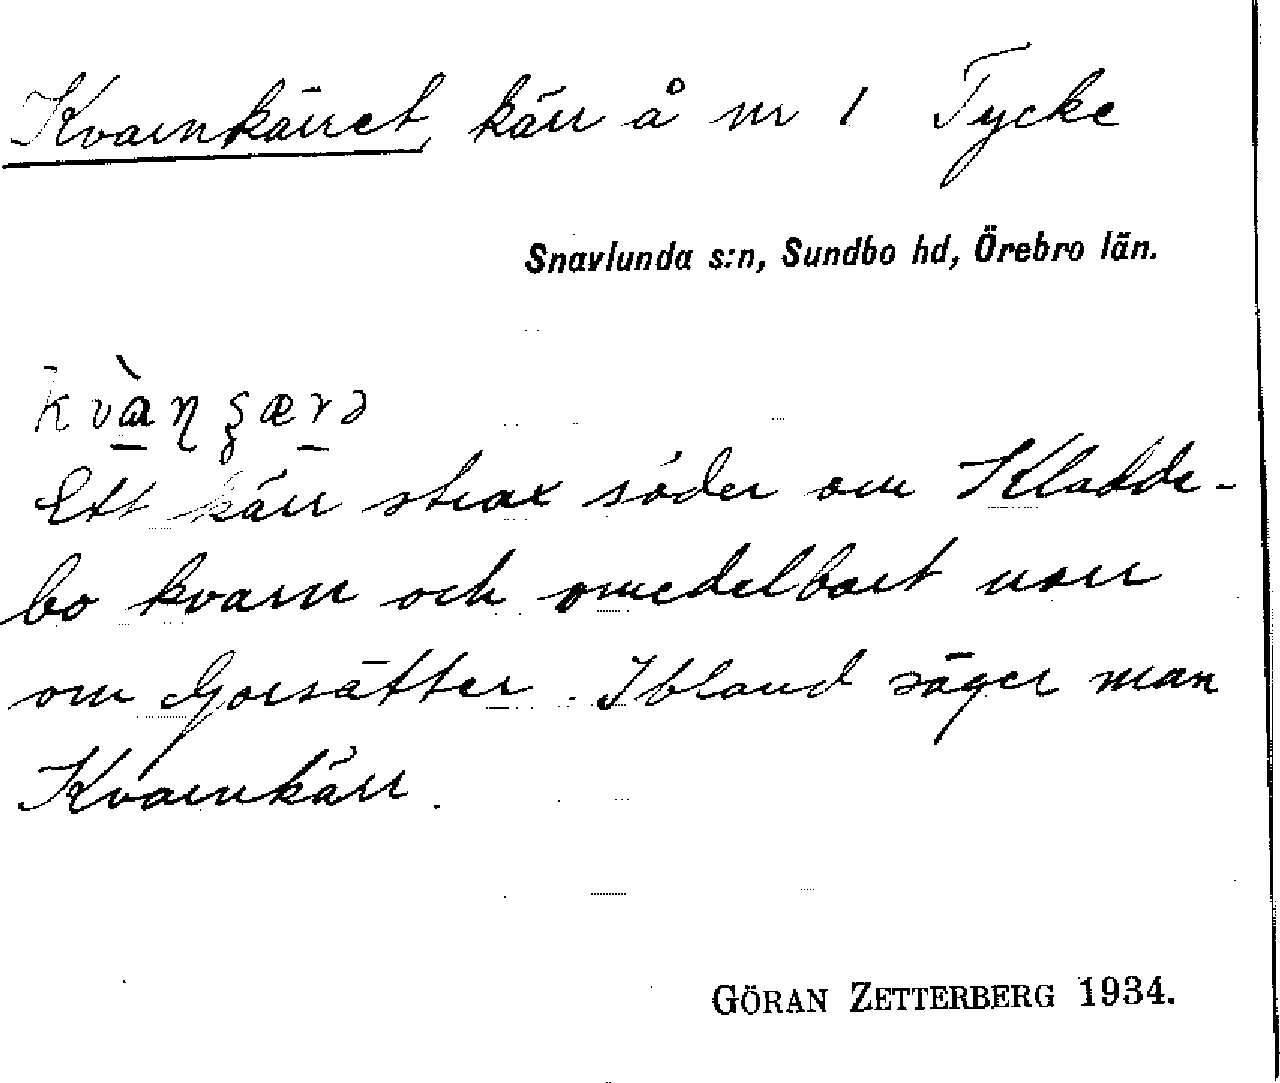 Kvarnkärret, kärr å nr 1 Tycke
Snavlunda s:n, Sundbo hd, Örebro län.
kvàɳ ʂærə
Ett kärr strax söder om Kladde-
bo kvarn och omedelbart norr
om Gorsätter. Ibland säger man
Kvarnkärr.
GÖRAN ZETTERBERG 1934.